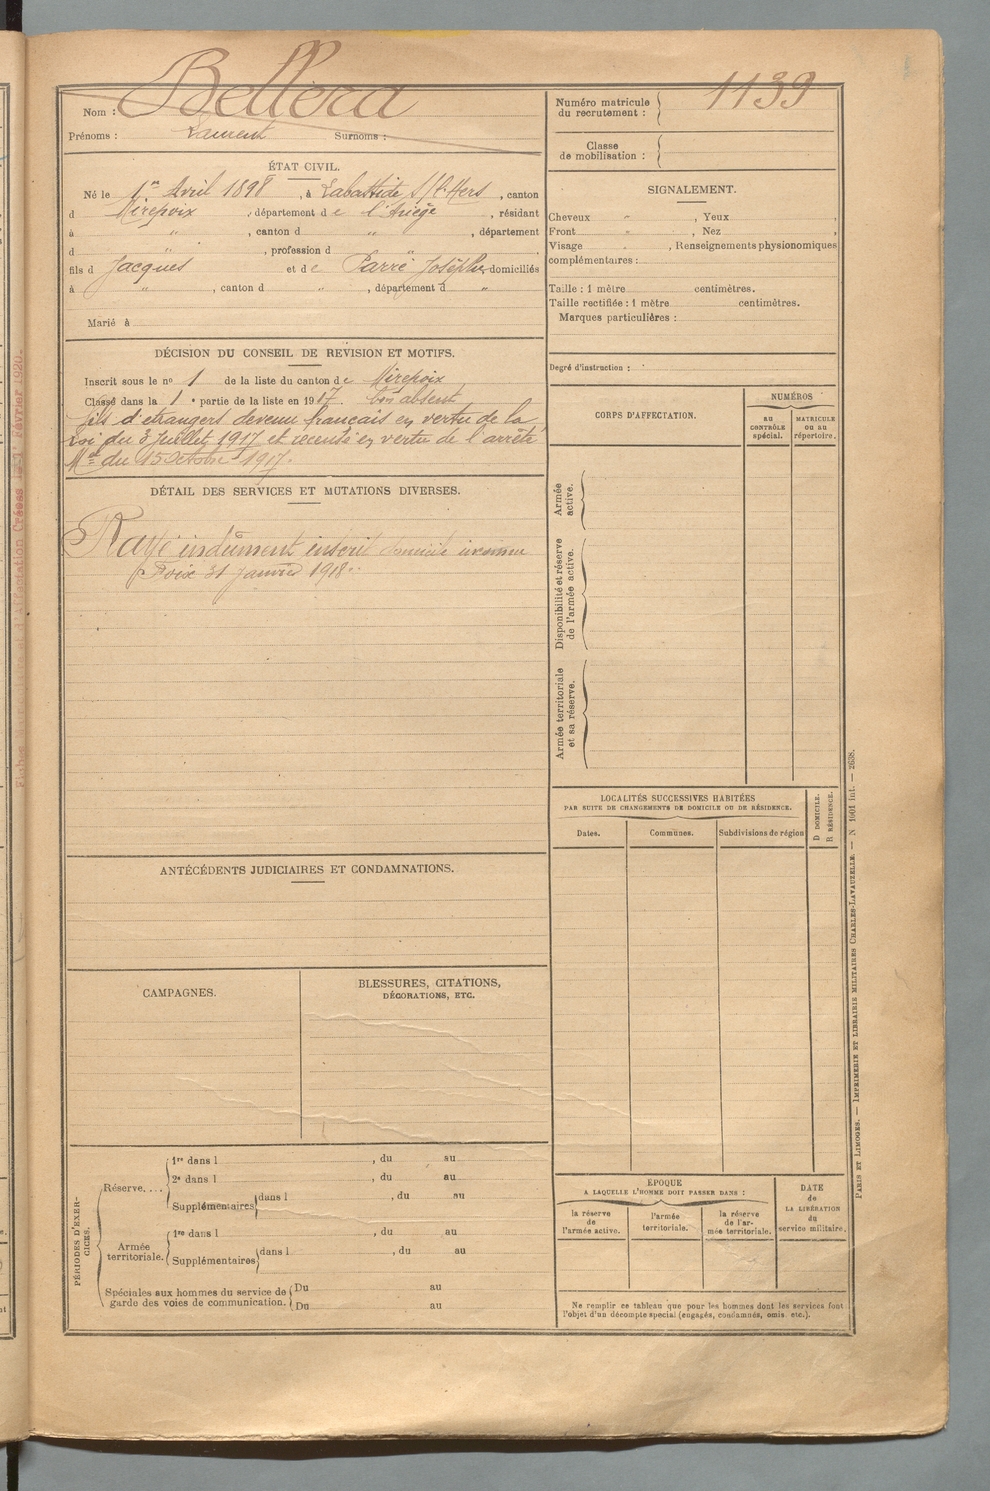 Nom : Bellera
Prénoms : Laurent Surnoms :
ÉTAT CIVIL.
Né le 1er Avril 1898, à Labastide S/l'Hers, canton
d Mirepoix, département de l'Ariège, résidant
à ", canton d ", département
d ", profession d ",
fils d Jacques et de Parré Josèphe domiciliés
à ", canton d ", département d "
Marié à
DÉCISION DU CONSEIL DE REVISION ET MOTIFS.
Inscrit sous le no 1 de la liste du canton de Mirepoix
Classé dans la 1e partie de la liste en 1917. bon absent
fils d'étrangers devenu français en vertu de la
Loi du 3 Juillet 1917 et recensé en vertu de l'arrêté
Mel du 15 Octobre 1917.
DÉTAIL DES SERVICES ET MUTATIONS DIVERSES.
Rayé indûment inscrit domicile inconnu
Foix 31 janvier 1918.
ANTÉCÉDENTS JUDICIAIRES ET CONDAMNATIONS.
CAMPAGNES.
BLESSURES, CITATIONS,
DÉCORATIONS, ETC.
PÉRIODES D'EXER-
CICES.
Réserve....
1re dans l , du au
2e dans l , du au
Supplémentaires dans l , du au
Armée
territoriale.
1re dans l , du au
Supplémentaires dans l , du au
Spéciales aux hommes du service de
garde des voies de communication.
Du au
Du au
Numéro matricule
du recrutement : 1139
Classe
de mobilisation :
SIGNALEMENT.
Cheveux " , Yeux ,
Front " , Nez ,
Visage " , Renseignements physionomiques
complémentaires :
Taille : 1 mètre centimètres.
Taille rectifiée : 1 mètre centimètres.
Marques particulières :
Degré d'instruction :
CORPS D'AFFECTATION.
NUMÉROS
AU
CONTRÔLE
spécial.
MATRICULE
OU AU
répertoire.
Armée
active.
Disponibilité et réserve
de l'armée active.
Armée territoriale
et sa réserve.
LOCALITÉS SUCCESSIVES HABITÉES
PAR SUITE DE CHANGEMENTS DE DOMICILE OU DE RÉSIDENCE.
D DOMICILE.
R RÉSIDENCE.
Dates.
Communes.
Subdivisions de région
ÉPOQUE
A LAQUELLE L'HOMME DOIT PASSER DANS :
la réserve
de
l'armée active.
l'armée
territoriale.
la réserve
de l'ar-
mée territoriale.
DATE
de
LA LIBÉRATION
du
service militaire.
Ne remplir ce tableau que pour les hommes dont les services font
l'objet d'un décompte spécial (engagés, condamnés, omis, etc.).
PARIS ET LIMOGES. — IMPRIMERIE ET LIBRAIRIE MILITAIRES CHARLES-LAVAUZELLE. — N 1601 int. — 2638.